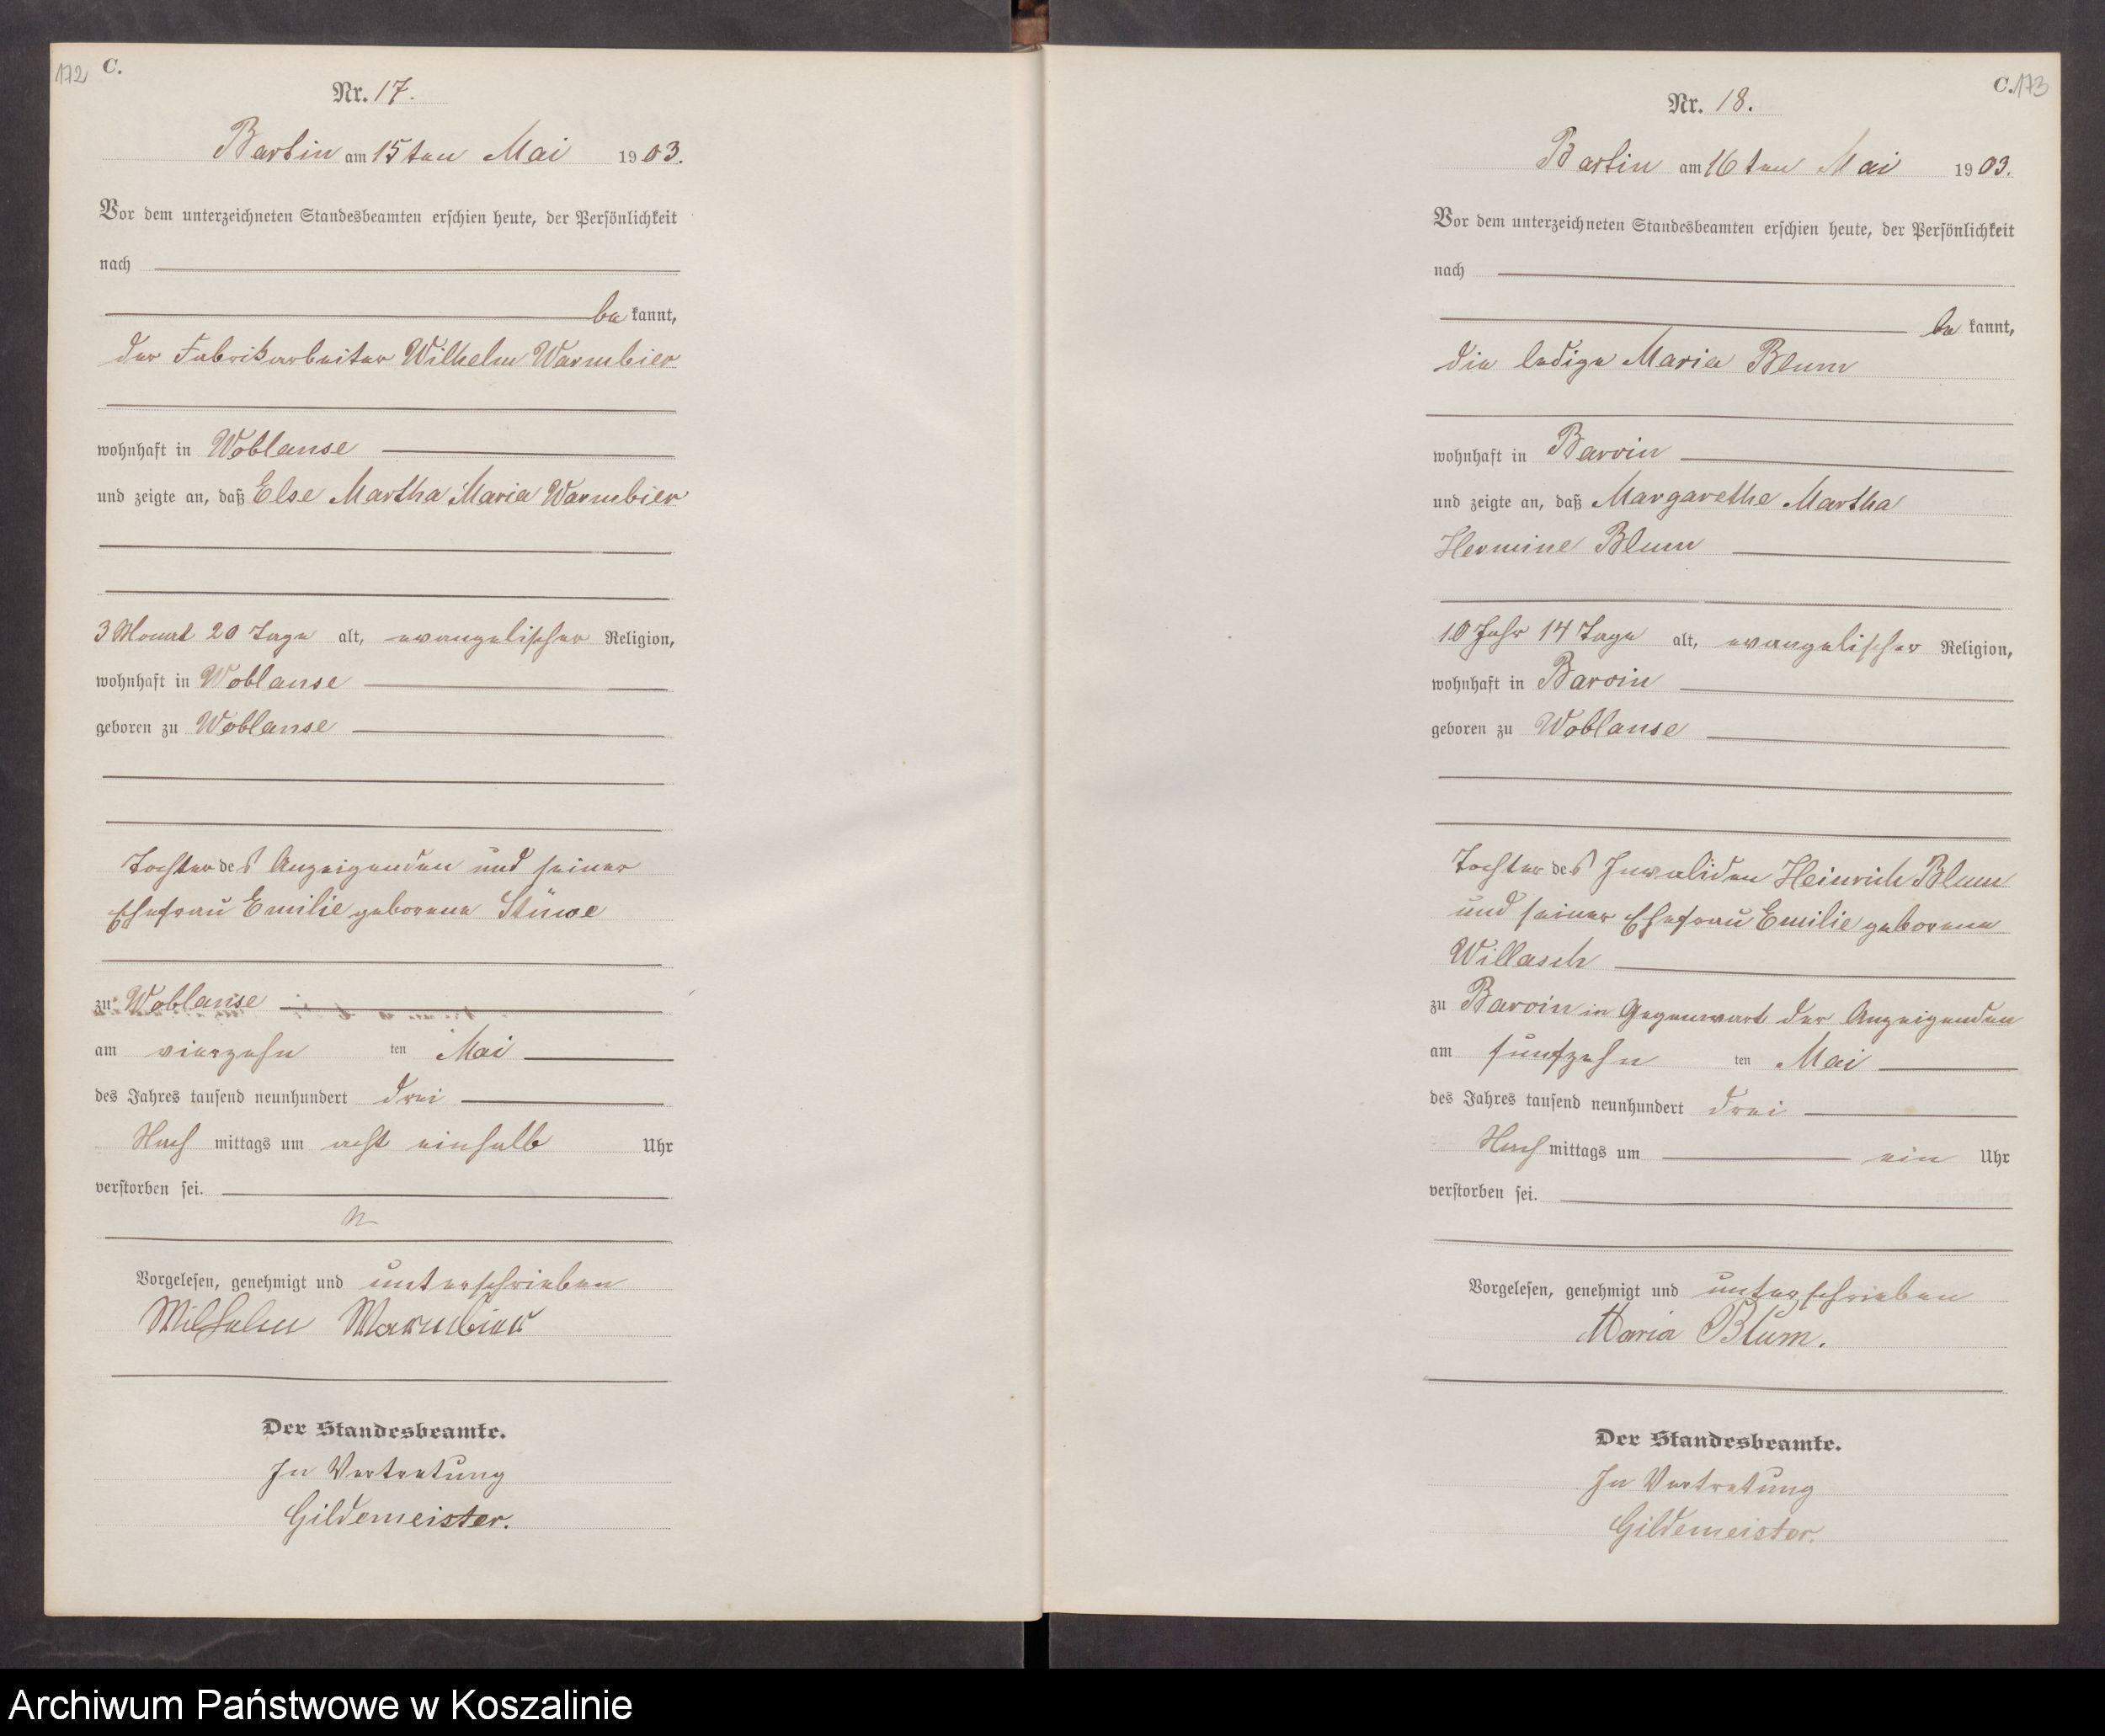 172 C.
Nr. 17.
Bartin am 15ten Mai 1903.
Vor dem unterzeichneten Standesbeamten erschien heute, der Persönlichkeit
nach
be kannt,
der Fabrikarbeiter Wilhelm Warmbier
wohnhaft in Woblanse
und zeigte an, daß Else Martha Maria Warmbier
3 Monat 20 Tage alt, evangelischer Religion,
wohnhaft in Woblanse
geboren zu Woblanse
Tochter des Anzeigenden und seiner
Ehefrau Emilie geborene Stüwe
zu Woblanse
am vierzehn ten Mai
des Jahres tausend neunhundert drei
Nach mittags um acht einhalb Uhr
verstorben sei.
Vorgelesen, genehmigt und unterschrieben
Wilhelm Warmbier
Der Standesbeamte.
In Vertretung
Gildemeister.
C. 173
Nr. 18.
Bartin am 16ten Mai 1903.
Vor dem unterzeichneten Standesbeamten erschien heute, der Persönlichkeit
nach
be kannt,
die ledige Maria Blum
wohnhaft in Barvin
und zeigte an, daß Margarethe Martha
Hermine Blum
10 Jahr 14 Tage alt, evangelischer Religion,
wohnhaft in Barvin
geboren zu Woblanse
Tochter des Invaliden Heinrich Blum
und seiner Ehefrau Emilie geborene
Willasch
zu Barvin in Gegenwart der Anzeigenden
am fünfzehn ten Mai
des Jahres tausend neunhundert drei
Nach mittags um ein Uhr
verstorben sei.
Vorgelesen, genehmigt und unterschrieben
Maria Blum.
Der Standesbeamte.
In Vertretung
Gildemeister.
Archiwum Państwowe w Koszalinie